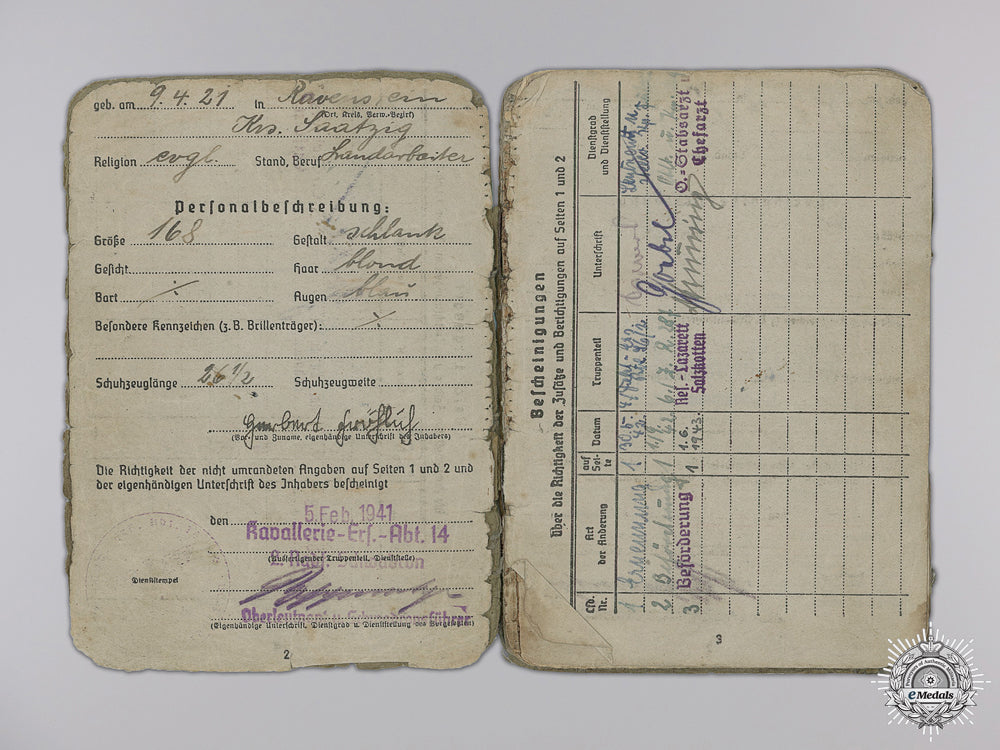 geb. am 9.4.21 in Ravenstein
(Ort, Kreis, Verw.-Bezirk)
Krs. Saatzig
Religion evgl. Stand, Beruf Landarbeiter
Personalbeschreibung:
Größe 168 Gestalt schlank
Gesicht Haar blond
Bart ./. Augen blau
Besondere Kennzeichen (z.B. Brillenträger): ./.
Schuhzeuglänge 26 1/2 Schuhzeugweite
Herbert Fröhlich
(Vor- und Zuname, eigenhändige Unterschrift des Inhabers)
Die Richtigkeit der nicht umrandeten Angaben auf Seiten 1 und 2 und
der eigenhändigen Unterschrift des Inhabers bescheinigt
den 5. Feb. 1941
Kavallerie-Ers.-Abt. 14
(Ausfertigender Truppenteil, Dienststelle)
Dienststempel
Oberleutnant u. Schwadronsführer
(Eigenhändige Unterschrift, Dienstgrad u. Dienststellung des Vorgesetzten)
2
Bescheinigungen
über die Richtigkeit der Zusätze und Berichtigungen auf Seiten 1 und 2
Lfd. Nr. Art der Änderung auf Seite Datum Truppenteil Unterschrift Dienstgrad und Dienststellung
1 Ernennung 1 30.5.
2 Beförderung 1 Goebel
3. Beförderung 1 1.6. 1943 Res.-Lazarett Salzkotten O.-Stabsarzt Chefarzt
3
Purveyors of Authentic Medals
eMedals